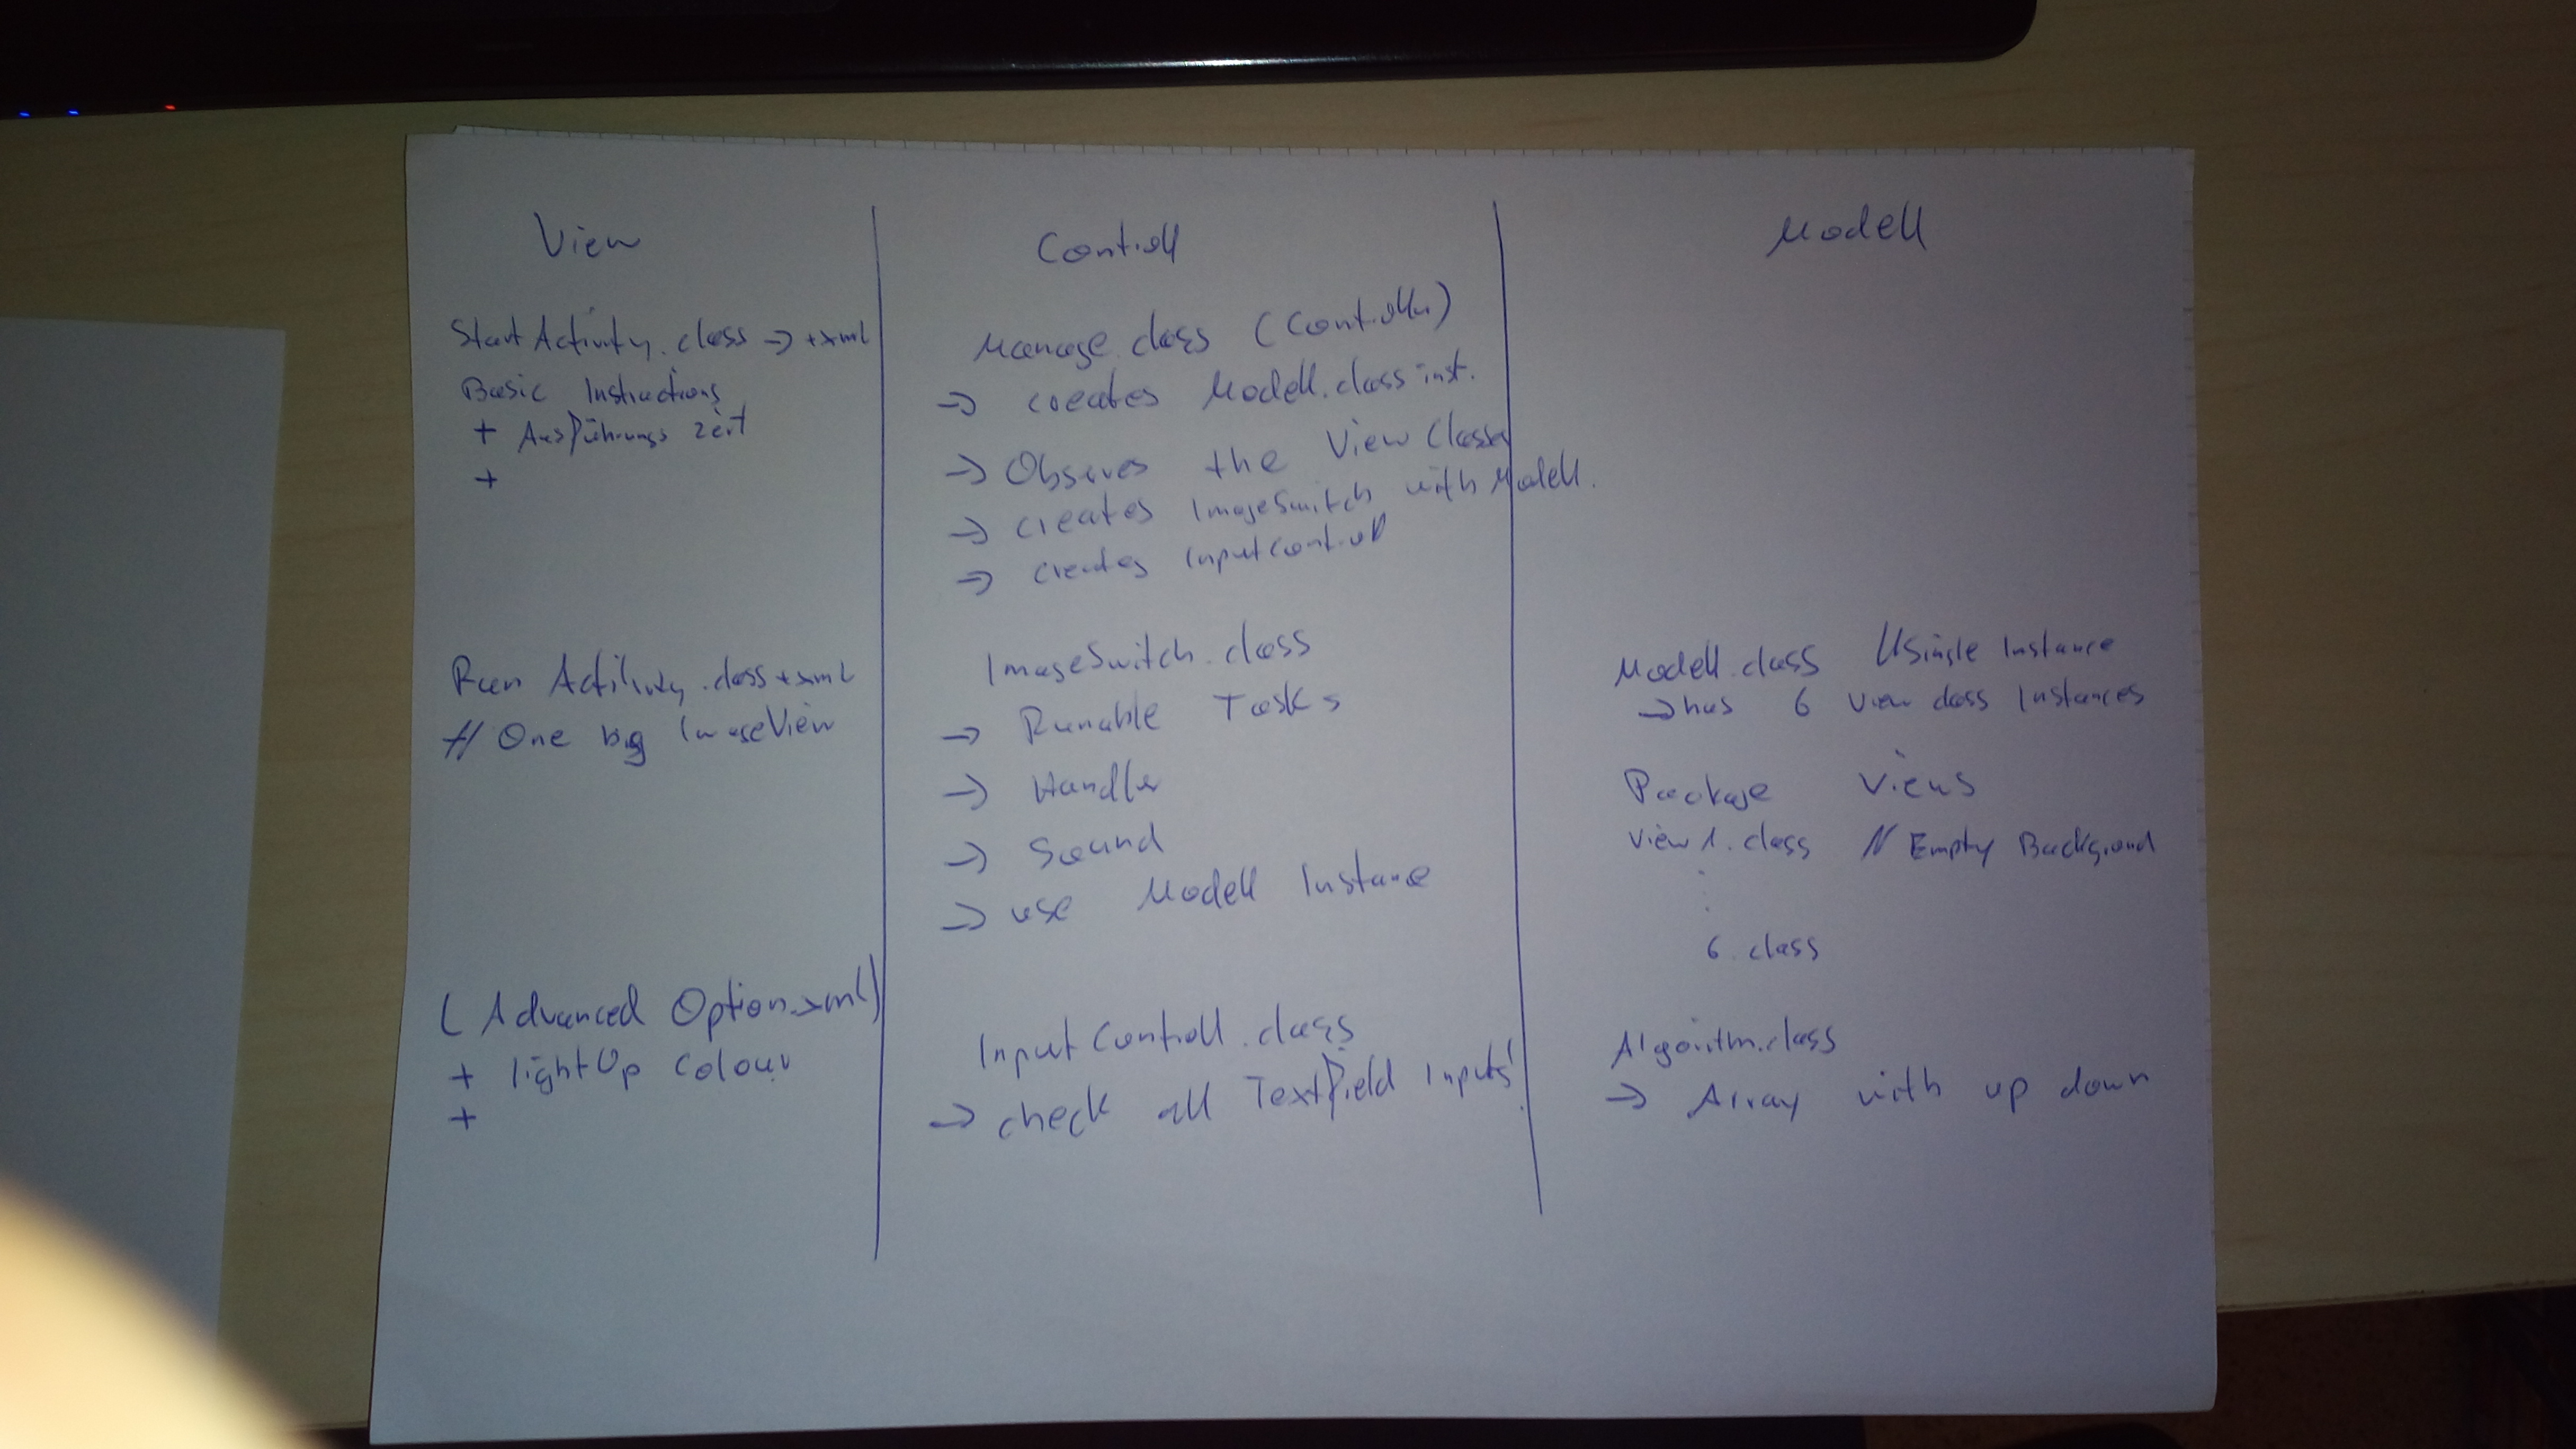 View
StartActivity.class -> +xml
Basic Instructions
+ Ausführungs zeit
+
Run Activity.class +xml
// One big ImageView
(Advanced Option.xml)
+ lightUp Colour
+
Controll
Manage.class (Controller)
-> creates Modell.class inst.
-> Observes the View Classes
-> creates ImageSwitch with Modell.
-> creates InputControll
ImageSwitch.class
-> Runable Tasks
-> Handler
-> Sound
-> use Modell Instance
InputControll.class
-> check all Textfield Inputs!
Modell
Modell.class // Single Instance
-> has 6 View class Instances
Package Views
View 1.class // Empty Background
:
6.class
Algorithm.class
-> Array with up down